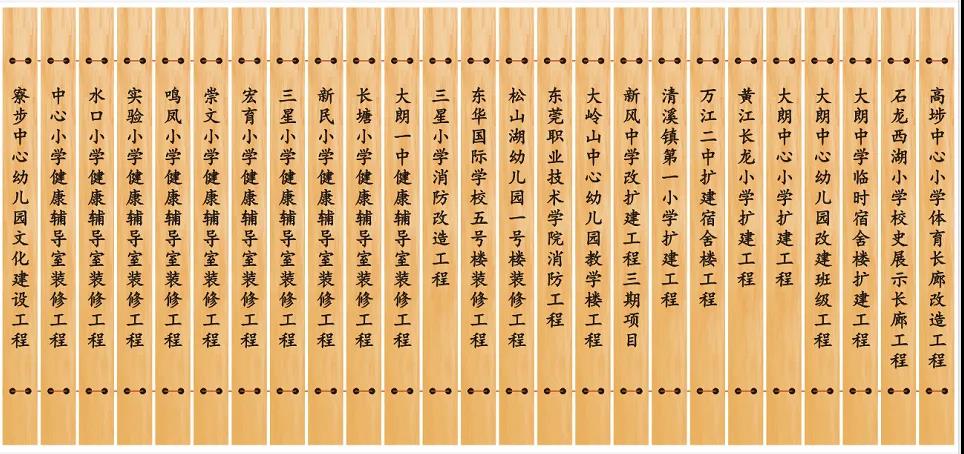 高埗中心小学体育长廊改造工程
石龙西湖小学校史展示长廊工程
大朗中学临时宿舍楼扩建工程
大朗中心幼儿园改建班级工程
大朗中心小学扩建工程
黄江长龙小学扩建工程
万江二中扩建宿舍楼工程
清溪镇第一小学扩建工程
新风中学改扩建工程三期项目
大岭山中心幼儿园教学楼工程
东莞职业技术学院消防工程
松山湖幼儿园一号楼装修工程
东华国际学校五号楼装修工程
三星小学消防改造工程
大朗一中健康辅导室装修工程
长塘小学健康辅导室装修工程
新民小学健康辅导室装修工程
三星小学健康辅导室装修工程
宏育小学健康辅导室装修工程
崇文小学健康辅导室装修工程
鸣凤小学健康辅导室装修工程
实验小学健康辅导室装修工程
水口小学健康辅导室装修工程
中心小学健康辅导室装修工程
寮步中心幼儿园文化建设工程